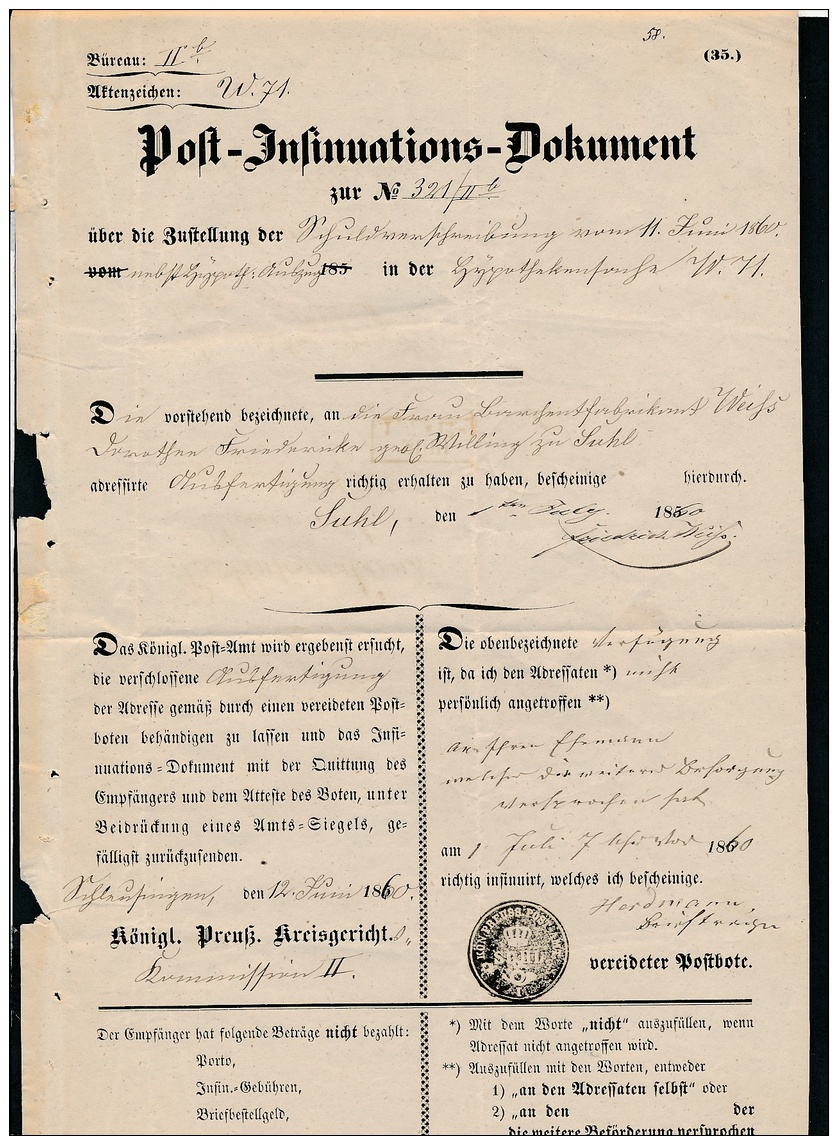 58.
Büreau: II b
(35.)
Aktenzeichen: W. 71.
Post-Insinuations-Dokument
zur № 321/II b
über die Zustellung der Schuldverschreibung vom 11. Juni 1860.
vom nebst Hypoth: Auszug 185 in der Hypothekensache W. 71.
Die vorstehend bezeichnete, an die Frau Barchentfabrikant Weihs
Dorothee Friedericke geb. Willing zu Suhl
adressirte Ausfertigung richtig erhalten zu haben, bescheinige hierdurch.
Suhl, den 1ten July. 1860
Friedrich Weihs.
Das Königl. Post-Amt wird ergebenst ersucht,
die verschlossene Ausfertigung
der Adresse gemäß durch einen vereideten Post-
boten behändigen zu lassen und das Insi-
nuations-Dokument mit der Quittung des
Empfängers und dem Atteste des Boten, unter
Beidrückung eines Amts-Siegels, ge-
fälligst zurückzusenden.
Schleusingen, den 12. Juni 1860.
Königl. Preuß. Kreisgericht.s„
Kommission II.
Die obenbezeichnete Verfügung
ist, da ich den Adressaten *) nicht
persönlich angetroffen **)
an Ihren Ehemann
welcher die weitere Besorgung
versprochen hat
am 1 Juli 7 Uhr Vor 1860
richtig insinuirt, welches ich bescheinige.
Herdmann,
Briefträger
vereideter Postbote.
Der Empfänger hat folgende Beträge nicht bezahlt:
Porto,
Insin.-Gebühren,
Briefbestellgeld,
*) Mit dem Worte „nicht“ auszufüllen, wenn
Adressat nicht angetroffen wird.
**) Auszufüllen mit den Worten, entweder
1) „an den Adressaten selbst“ oder
2) „an den der
die weitere Beförderung versprochen